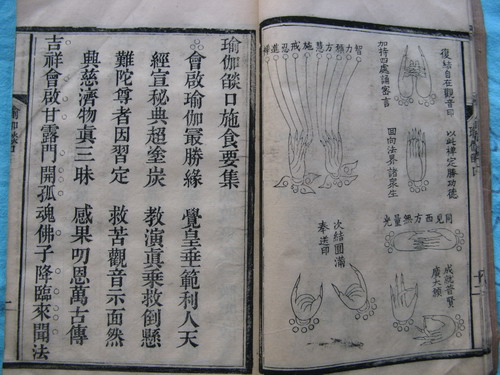 智力願方慧施戒忍進禪
復結自在觀音印
加持四處誦密言
以此禪定勝功德
回向法界諸衆生
同見西方無量光
次結圓滿
奉送印
成就普賢
廣大願
瑜伽燄口施食要集
會啟瑜伽最勝緣 覺皇垂範利人天
經宣秘典超塗炭 教演眞乘救倒懸
難陀尊者因習定 救苦觀音示面然
興慈濟物眞三昧 感果叨恩萬古傳
吉祥會啟甘露門開孤魂佛子降臨來聞法